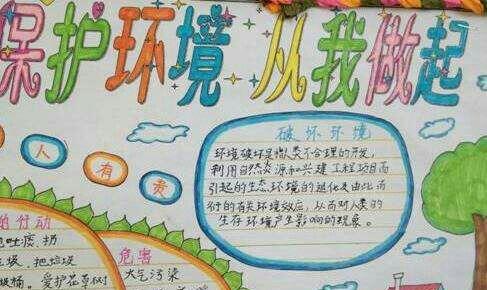 保护环境 从我做起
破坏环境
环境破坏是指人类不合理的开发,
利用自然资源和兴建工程项目而
引起的生态环境的退化及由此而
衍的有关环境效应,从而对人类的
生存环境产生影响的现象。
人
有
责
的行动
吐痰、扔
圾、把垃圾
圾桶。爱护花草树
危害
大气污染